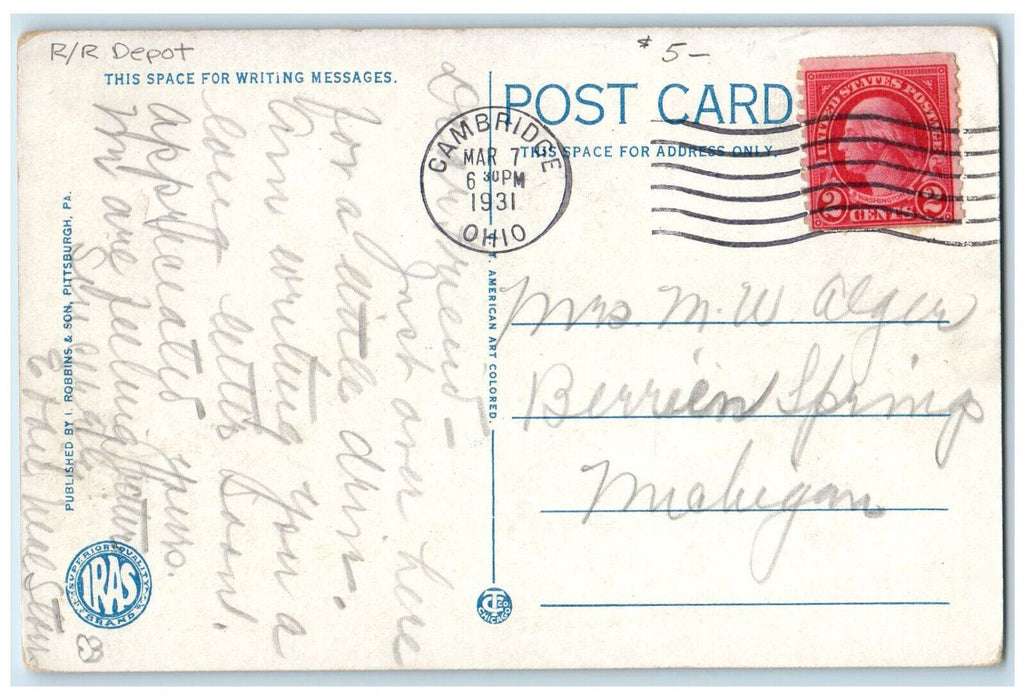 R/R Depot
$5-
THIS SPACE FOR WRITING MESSAGES.
POST CARD
THIS SPACE FOR ADDRESS ONLY.
CAMBRIDGE
MAR 7
6 30 PM
1931
OHIO
UNITED STATES POSTAGE
WASHINGTON
2 CENTS 2
Dear Friend -
Just over here
for a little drive.
Am writing you a
long letter soon.
appreciated yours.
are feeling better
Mrs. M. W. Alger
Berrien Springs
Michigan
PUBLISHED BY I. ROBBINS & SON, PITTSBURGH, PA.
AMERICAN ART COLORED.
SUPERIOR QUALITY
IRAS
BRAND
C T CO.
CHICAGO